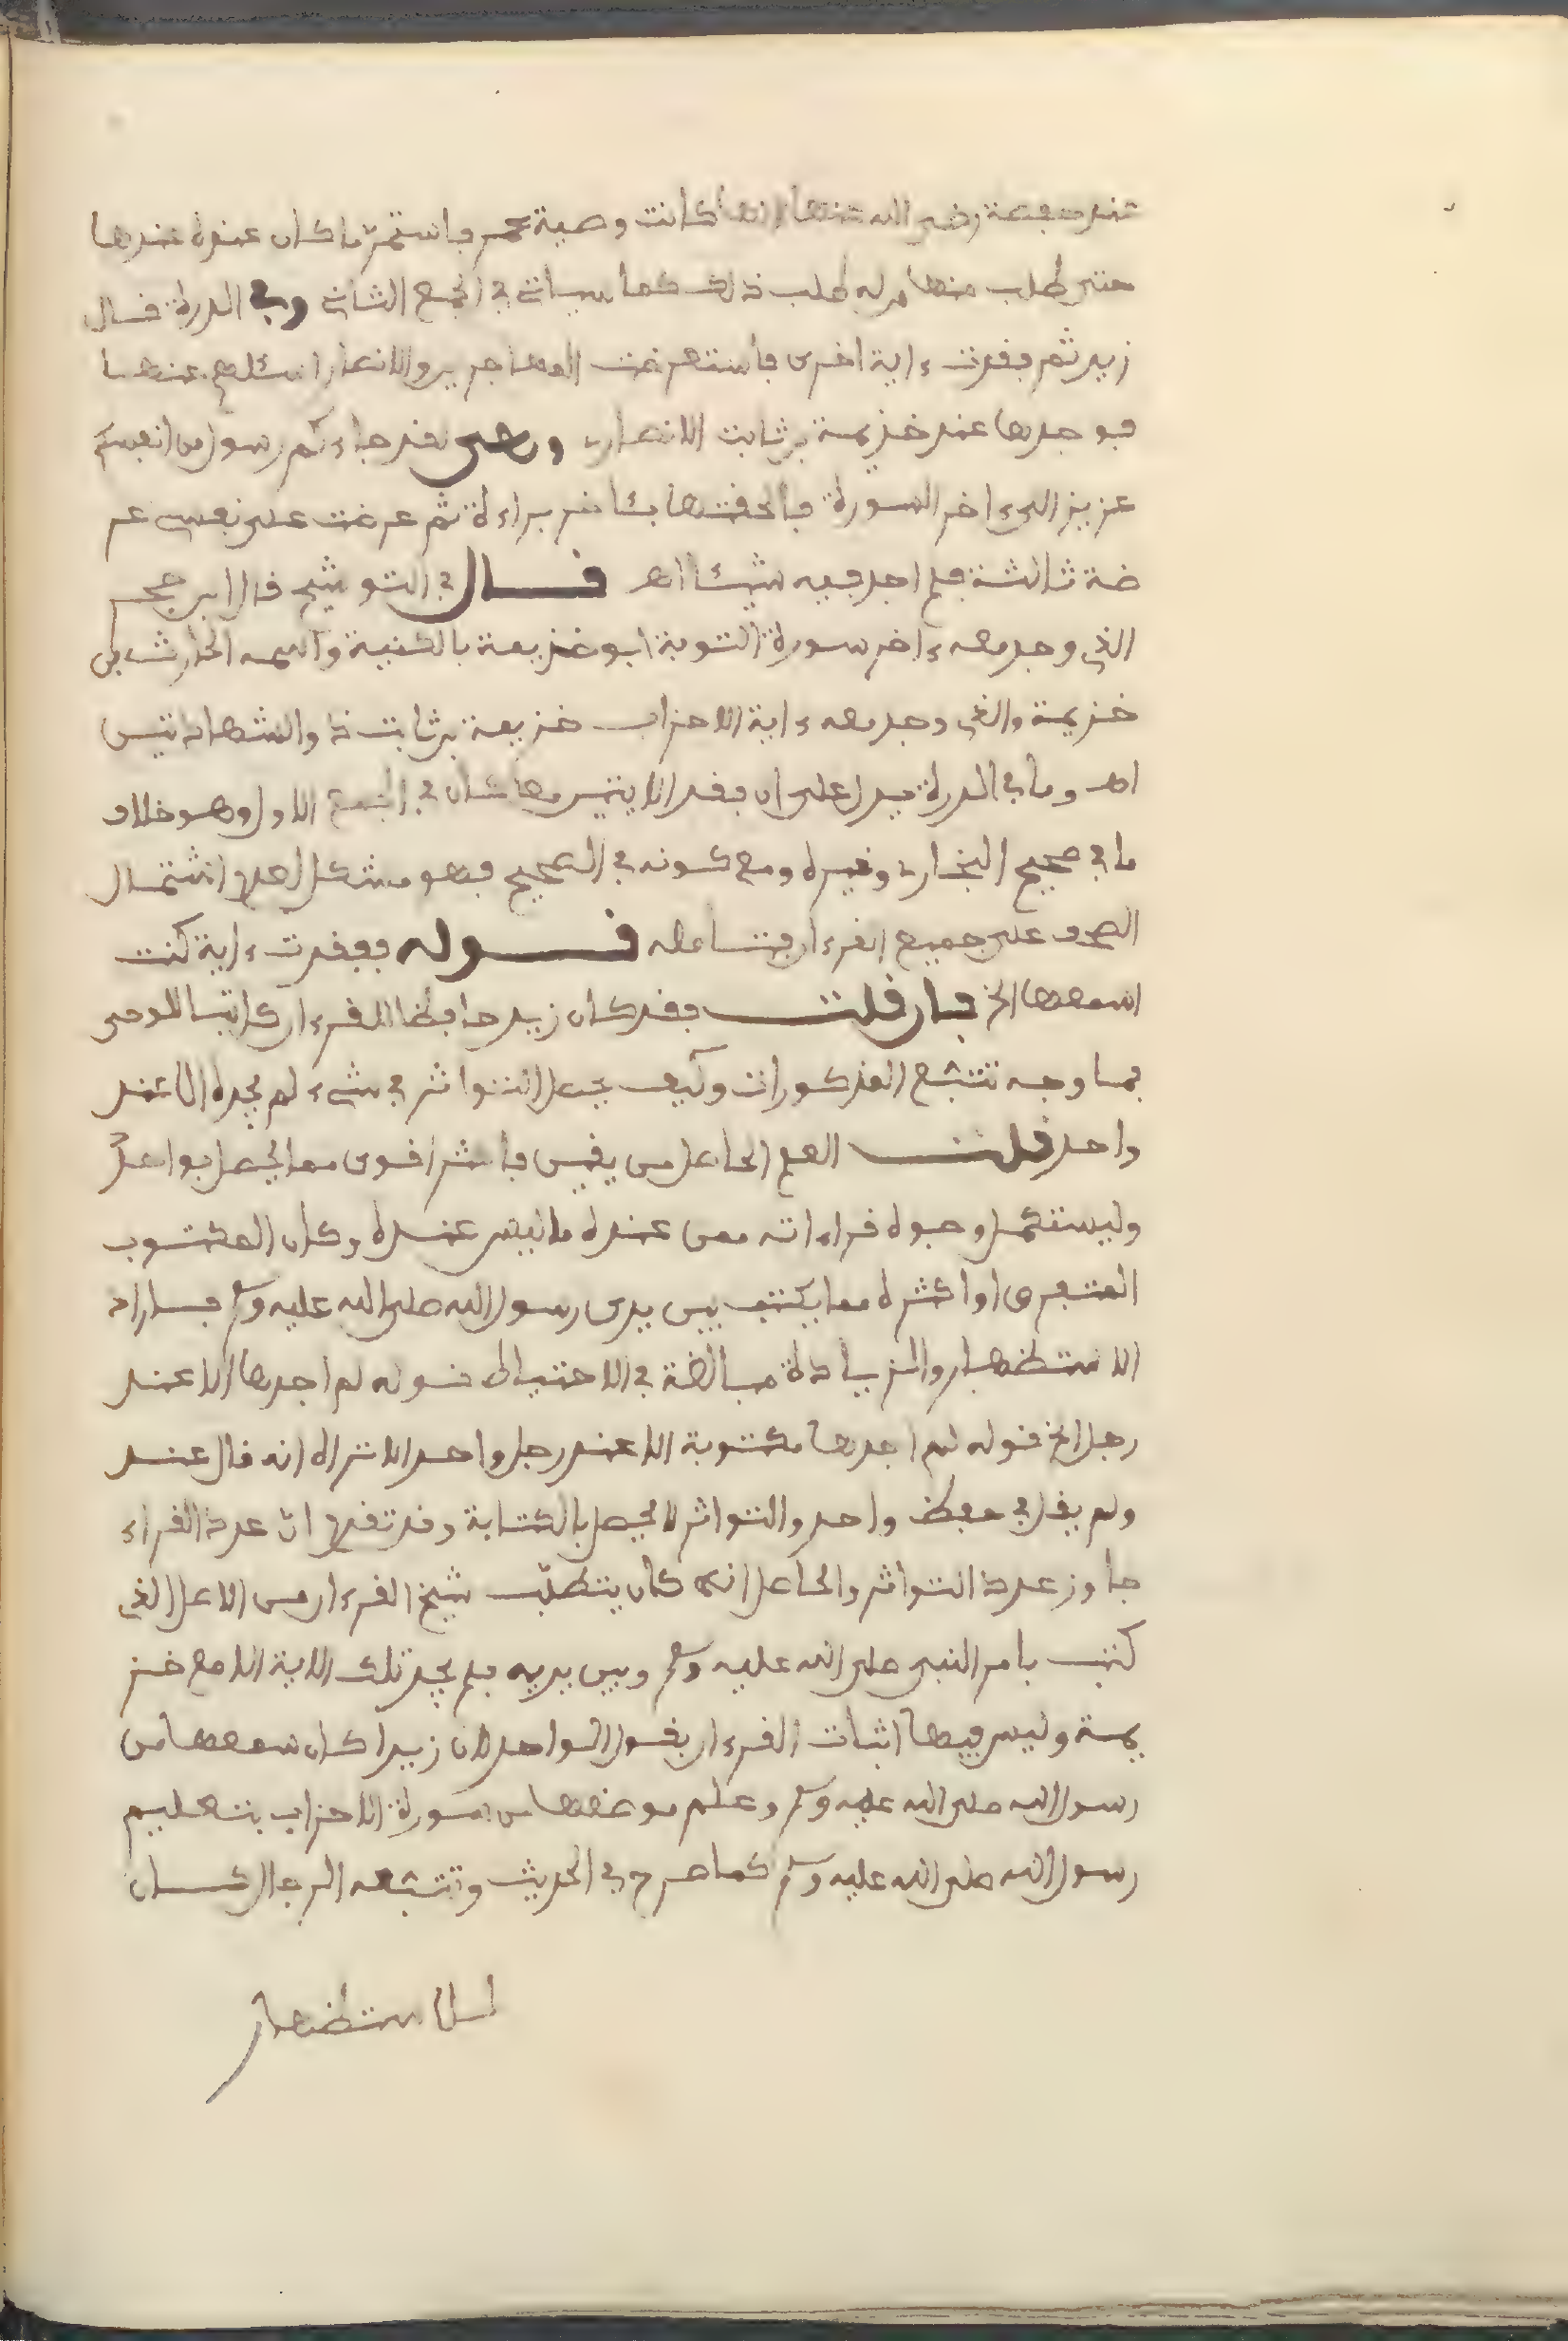 عند حفصة رضي الله عنها لانها كانت وصية عمر فاستمر ما كان عنده عندها
حتى طلب منها من له طلب ذلك كما سياتي في الجمع الثاني وفي الدرة قال
زيد ثم فقدت ءاية اخرى فاستعرضت المهاجرين والانصار اسئلهم عنها
فوجدتها عند خزيمة بن ثابت الانصاري وهي لقد جاءكم رسول من انفسكم
عزيز الى ءاخر السورة فالحقتها بئاخر براءة ثم عرضت على نفسي عر
ضة ثالثة فلم اجد فيه شيئا اهـ قال في التوشيح قال ابن حجر
الذي وجد معه ءاخر سورة التوبة ابو خزيمة بالكنية واسمه الحارث بن
خزيمة والذي وجد معه ءاية الاحزاب خزيمة بن ثابت ذو الشهادتين
اهـ وما في الدرة يدل على ان فقد الايتين معا كان في الجمع الاول وهو خلاف
ما في صحيح البخاري وغيره ومع كونه في الصحيح فهو مشكل لعدم اشتمال
الصحف على جميع القرءان فتامله قوله ففقدت ءاية كنت
اسمعها الخ فان قلت فقد كان زيد حافظا للقرءان كاتبا للوحي
فما وجه تتبع المذكورات وكيف يحصل التواتر في شيء لم يجده الا عند
واحد قلت العلم الحاصل من يقين فاكثر اقوى مما يحصل بواحد
وليستكمل وجوه قراءاته ممن عنده ما ليس عنده وكان المكتوب
المتفرق او اكثره مما يكتب بين يدي رسول الله صلى الله عليه وسلم فاراد
الاستظهار والزيادة مبالغة في الاحتياط قوله لم اجدها الا عند
رجل الخ قوله لم اجدها مكتوبة الا عند رجل واحد الا تراه انه قال عند
ولم يقل في حفظ واحد والتواتر لا يحصل بالكتابة وقد تقدم ان عدد القراء
جاوز عدد التواتر والحاصل انه كان يتطلب شيخ القرءان من الاصل الذي
كتب بامر النبي صلى الله عليه وسلم وبين يديه فلم يجد تلك الاية الا مع خز
يمة وليس فيها اثبات القرءان بقول الواحد لان زيدا كان سمعها من
رسول الله صلى الله عليه وسلم وعلم موضعها من سورة الاحزاب بتعليم
رسول الله صلى الله عليه وسلم كما صرح في الحديث وتتبعه الرجال كان
للاستظهار